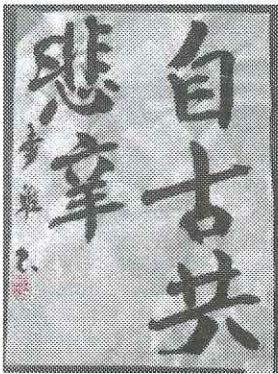 自古共
悲辛